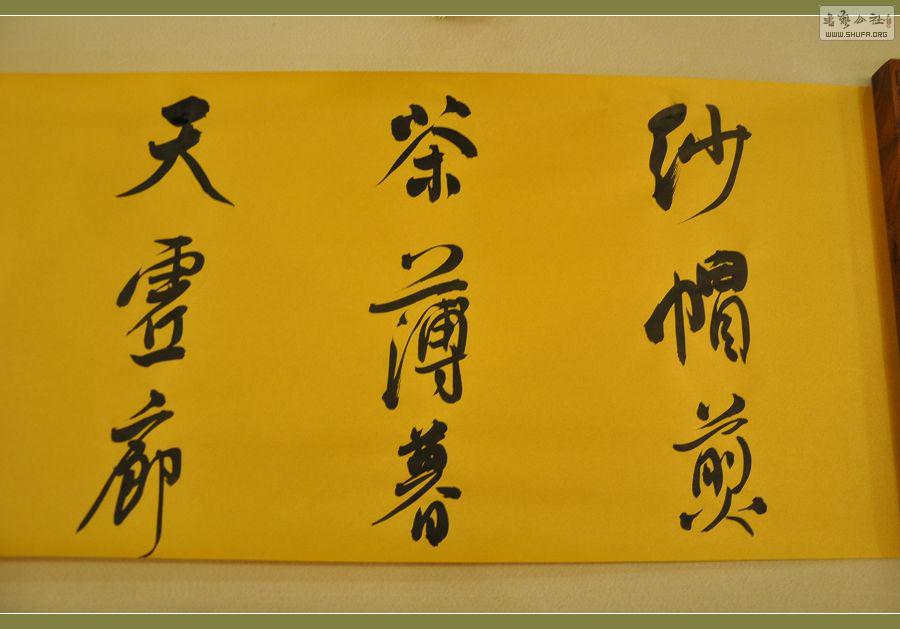 纱帽煎
茶薄暮
天虚廊
书艺公社
WWW.SHUFA.ORG